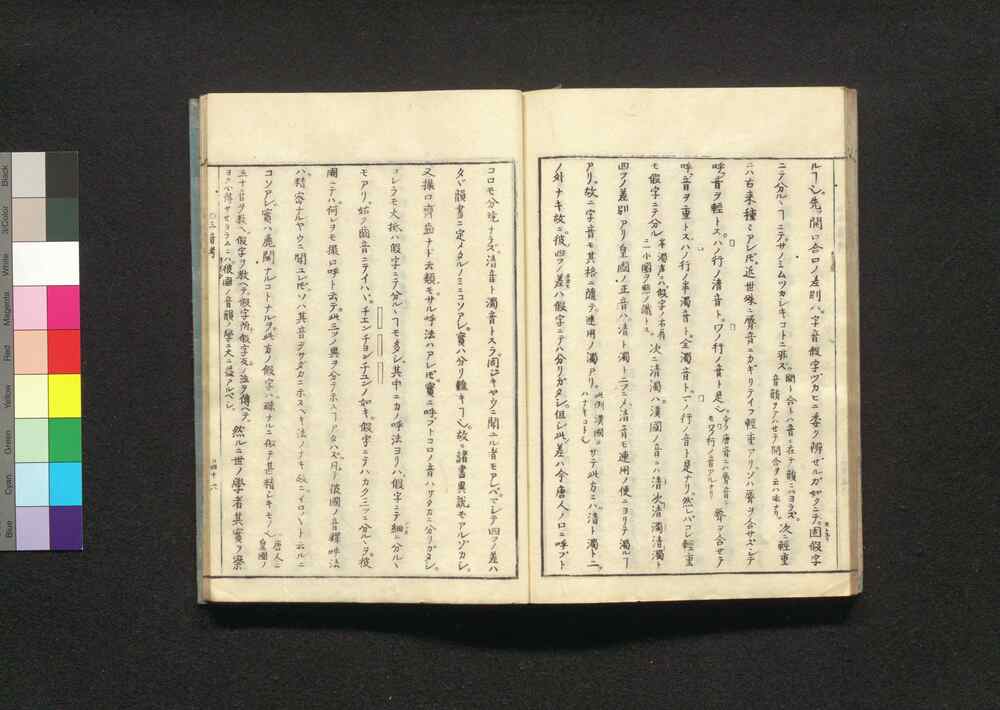 ルヿ也、先ヅ開口合口ノ差別ハ、字音假字ヅカヒニ委ク辨ゼルガ如クニテ、固假字
ニテ分ルヽヿニテ、サノミムツカシキコトニ非ズ、開ト合トハ音ニ在テ韻ニハヨラズ、音韻ヲアハセテ開合ヲ云ハ非ナリ、次ニ輕重
ニハ古来種々アレドモ、近世殊ニ脣音ニカギリテイフ輕重アリ、ソハ脣ヲ合サズシテ
呼音ヲ輕トス、ハノ行ノ清音ト、ワノ行ノ音ト是也、脣ヲ合セテ
呼音ヲ重トス、ハノ行ノ半濁音ト、全濁音ト、マノ行ノ音ト是ナリ、然レバコレ輕重
モ假字ニテ分ル、次ニ清濁ハ、漢國ノ音ニハ清次清濁清濁ト
四ツノ差別アリ、皇國ノ正音ハ、清ト濁ト二ツニメ、清音モ連用ノ便ニヨリテ濁ルヿ
アリ、故ニ字音モ其格ニ随テ、連用ノ濁アリ、サテ此方ニハ、清ト濁ト二ツ
ノ外ナキ故ニ、彼四ツノ差ハ假字ニテハ分リガタシ、但シ此差ハ今唐人ノ口ニ呼ブト
コロモ分境ナラズ、清音ト濁音トスラ、同ジキヤウニ聞ユル者モアレバ、マシテ四ツノ差ハ
タヾ韻書ニ定メタルノミニコソアレ、實ハ分リ難キヿ也、故ニ諸書異説モアルゾカシ、
又撮口齊齒ナド云類モ、サル呼法ハアレドモ、實ニ呼フトコロノ音ハ、サダカニ分リガタシ、
コレラモ大抵ハ假字ニテ分ルヽヿモ多シ、其中ニカノ呼法ヨリハ、假字ニテ細ニ分ルヽ
モアリ、姑ク齒音ニテイハヾ、チエンチヨンチユンノ如キ、假字ニテハカク三ツニ分ルヽヲ、彼
國ニテハ、何レヲモ撮口呼ト云テ、此三ツノ異ヲ分テ示スヿアタハズ、凡ソ彼國ノ音釋呼法
ハ、精密ナルヤウニ聞ユレドモ、ソハ其音ヲサダカニ示スベキ法ノナキ故ニ、イロ〳〵ト云ルニ
コソアレ、實ハ麁闊ナルコトナルヲ、此方ノ假字ハ、疎ナルニ似テ甚精シキモノ也、唐人ニ皇國ノ
五十音ヲ教ヘ、假字ヲ教ヘテ、假字附、假字反ノ法ヲ傳ヘテ、ヨク心得サセタラムニハ、彼國ノ音韻ノ學ニ大ニ益アルベシ、然ルニ世ノ學者其實ヲ察
三音考
四十六
Black
3/Color
White
Magenta
Red
Yellow
Green
Cyan
Blue